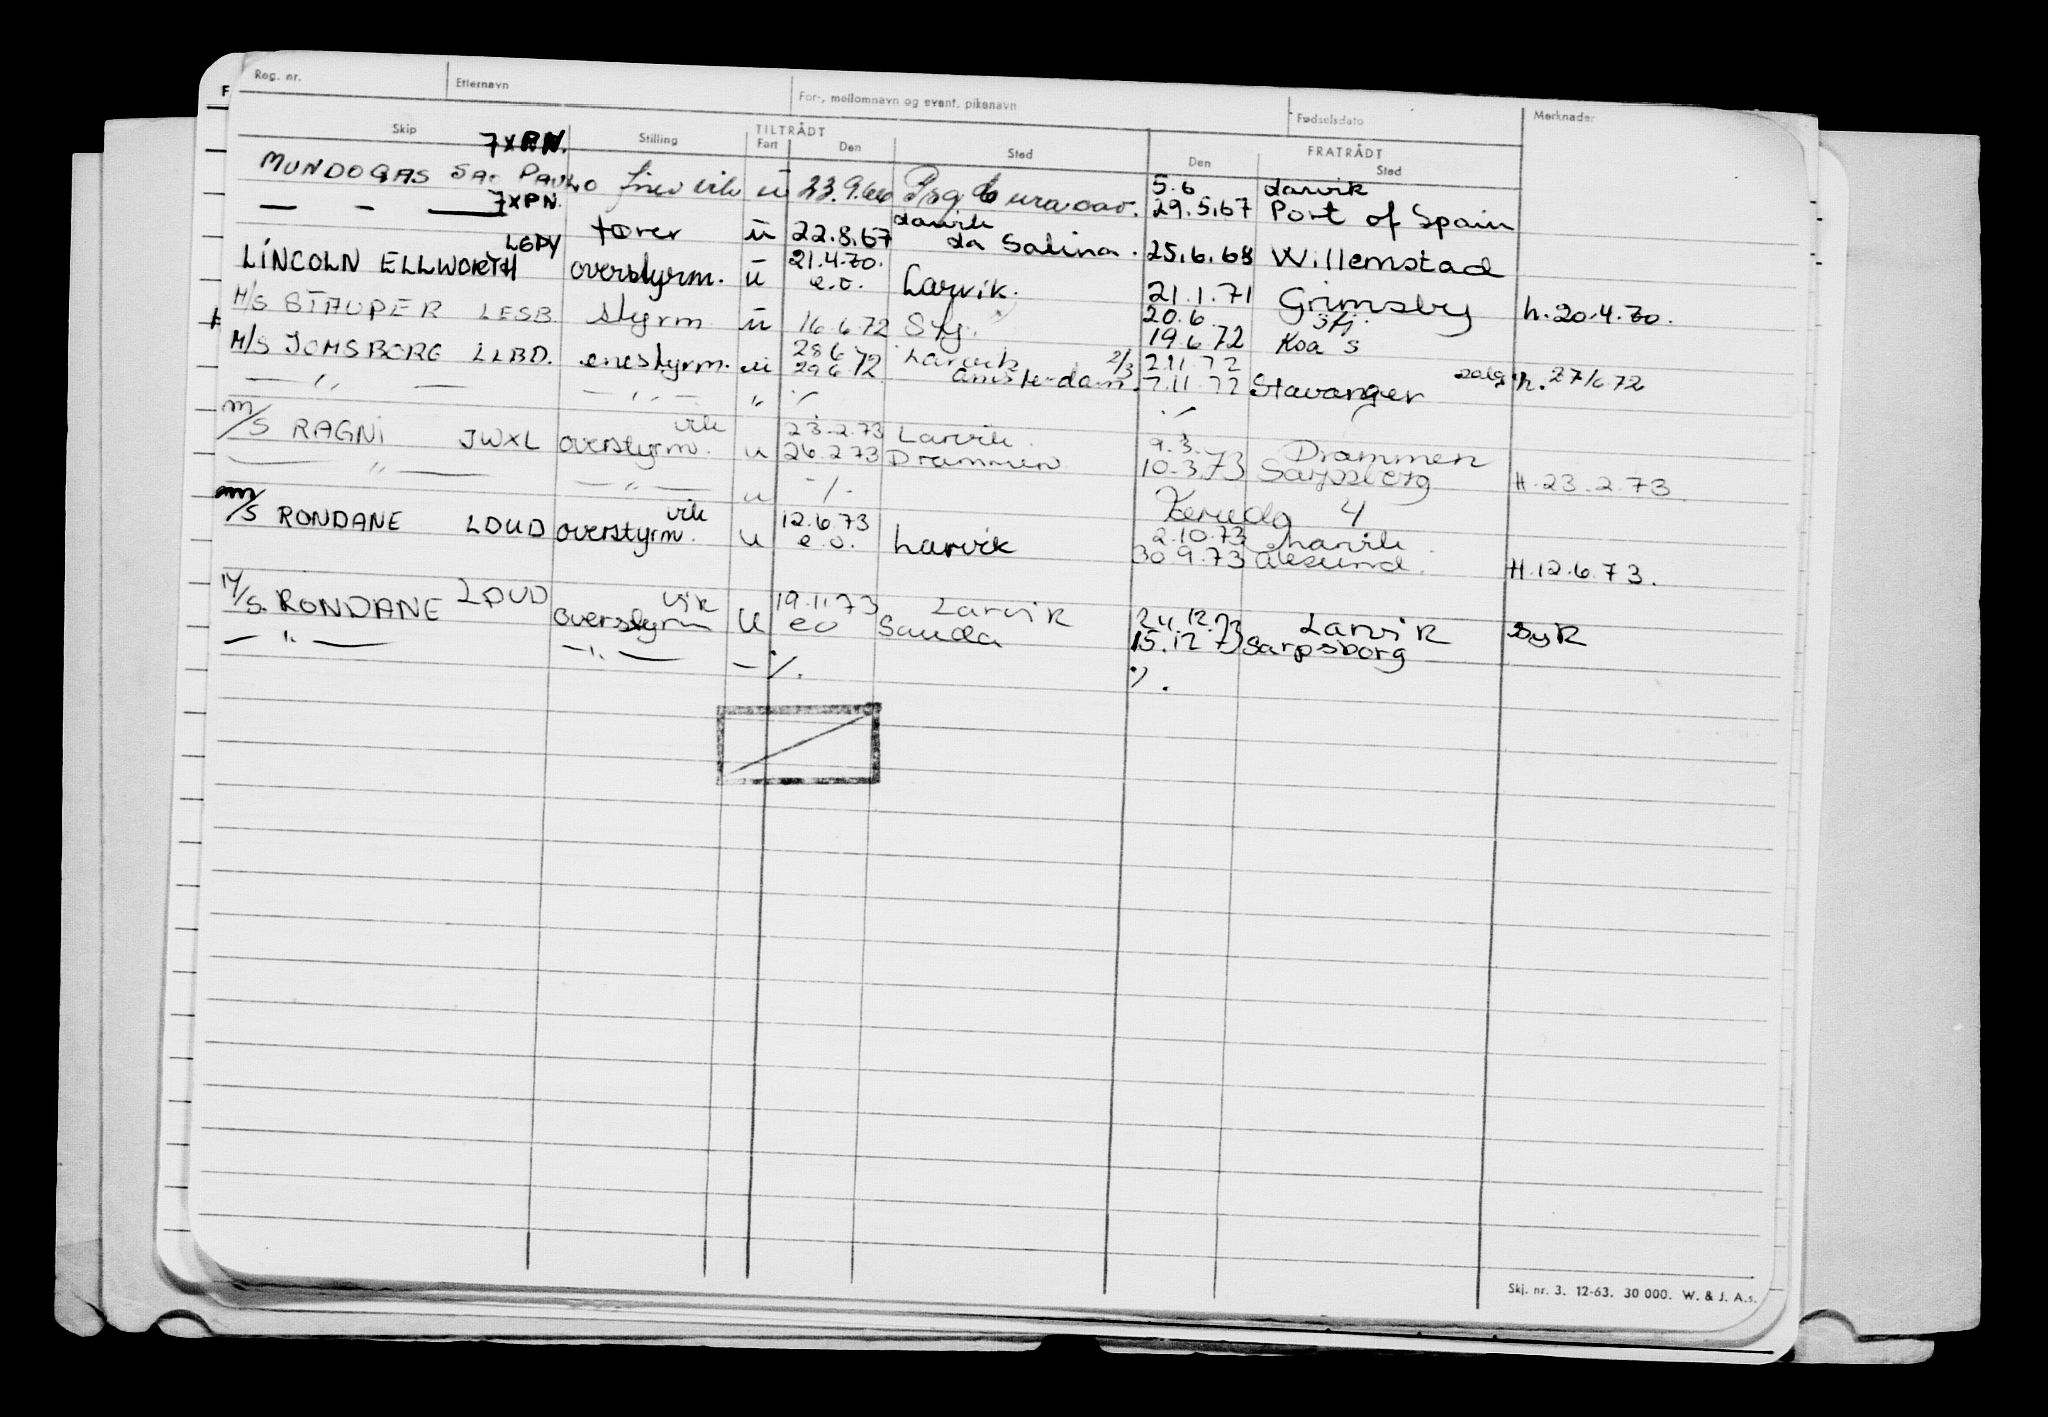 Reg. nr. Etternavn For-, mellomnavn og event. pikenavn Fødselsdato Merknader
Skip Stilling TILTRÅDT FRATRÅDT
Fart Den Sted Den Sted
7XPN.
MUNDOGAS SAO PAULO ü 23.9.66 5.6 Larvik
29.5.67 Port of Spain
— - — 7XPN. fører ü 22.8.67 Larvik La Salina. 25.6.68 Willemstad
LINCOLN ELLWORTH LGPY overstyrm. ü 21.4.70. e.o. Larvik. 21.1.71 Grimsby h.20.4.70.
M/S STAUPER LESB styrm ü 16.6.72 Sfj. 20.6 Sfj.
19.6.72 Koa s
M/S JOMSBORG LLBD. enestyrm. ü 28.6 29.6.72 Larvik Amsterdam. 2/3 2.11.72
7.11.72 Stavanger salg h. 27/6 72
— " — — " — " ·/· ·/·
m/S RAGNI JWXL vik overstyrm. u 23.2.73 Larvik 9.3. Drammen
26.2.73 Drammen 10.3.73 Sarpsborg H.23.2.73.
— " — — " — u ·/·
4
m/S RONDANE LDUD vik overstyrm. u 12.6.73 e.o. Larvik 2.10.73 Larvik
30.9.73 Ålesund. H.12.6.73.
M/S. RONDANE LDUD vik overstyrm U 19.11.73 Larvik 24.12.73 Larvik syk
eo Sauda 15.12.73 Sarpsborg
— " — — " — — ·/. ·/.
Skj. nr. 3. 12-63. 30 000. W. & J. A.s.